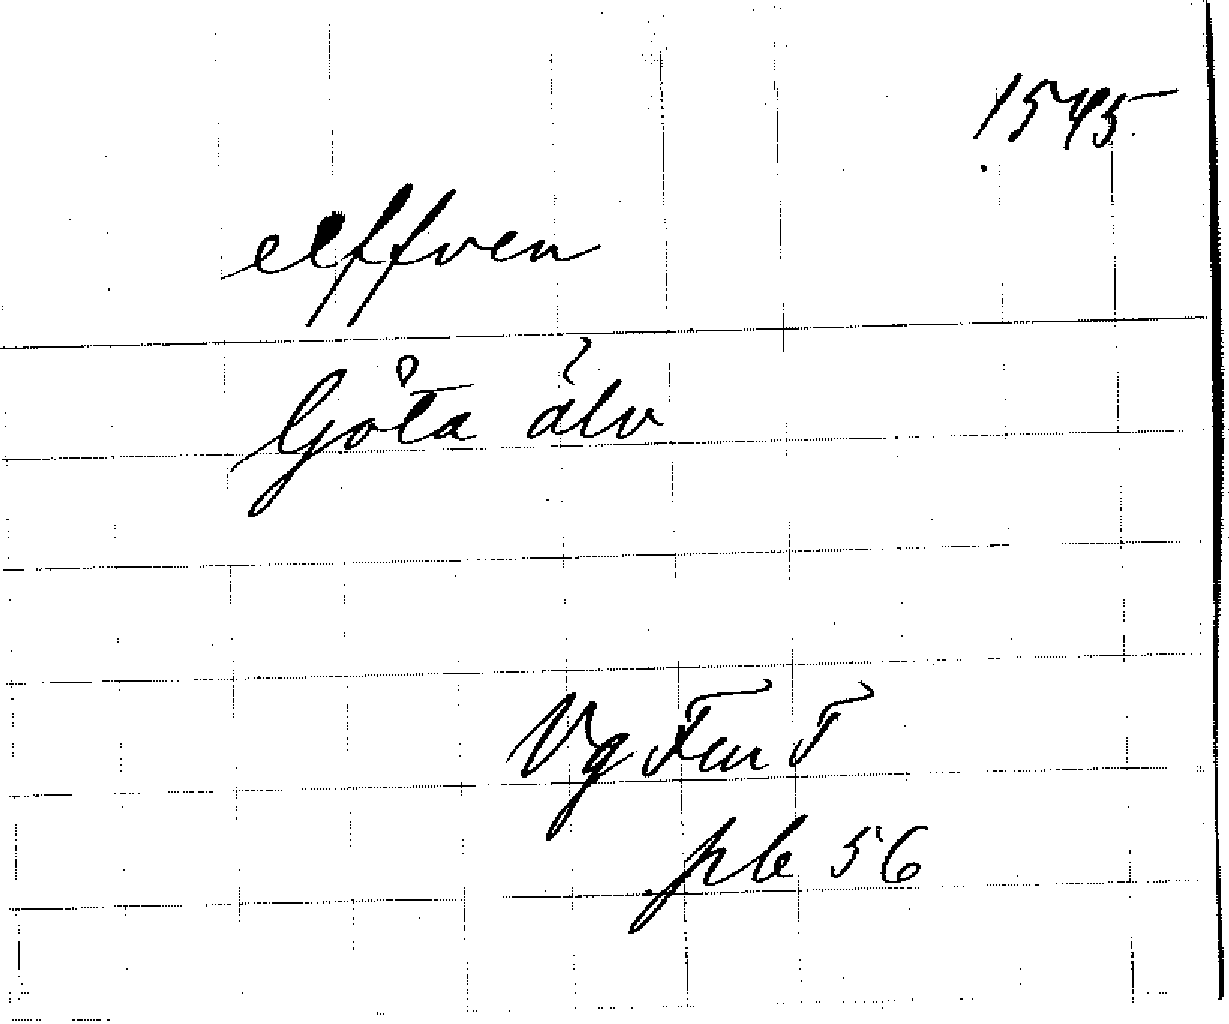 1545
elffven
Göta älv
Vg FmT
pb 56